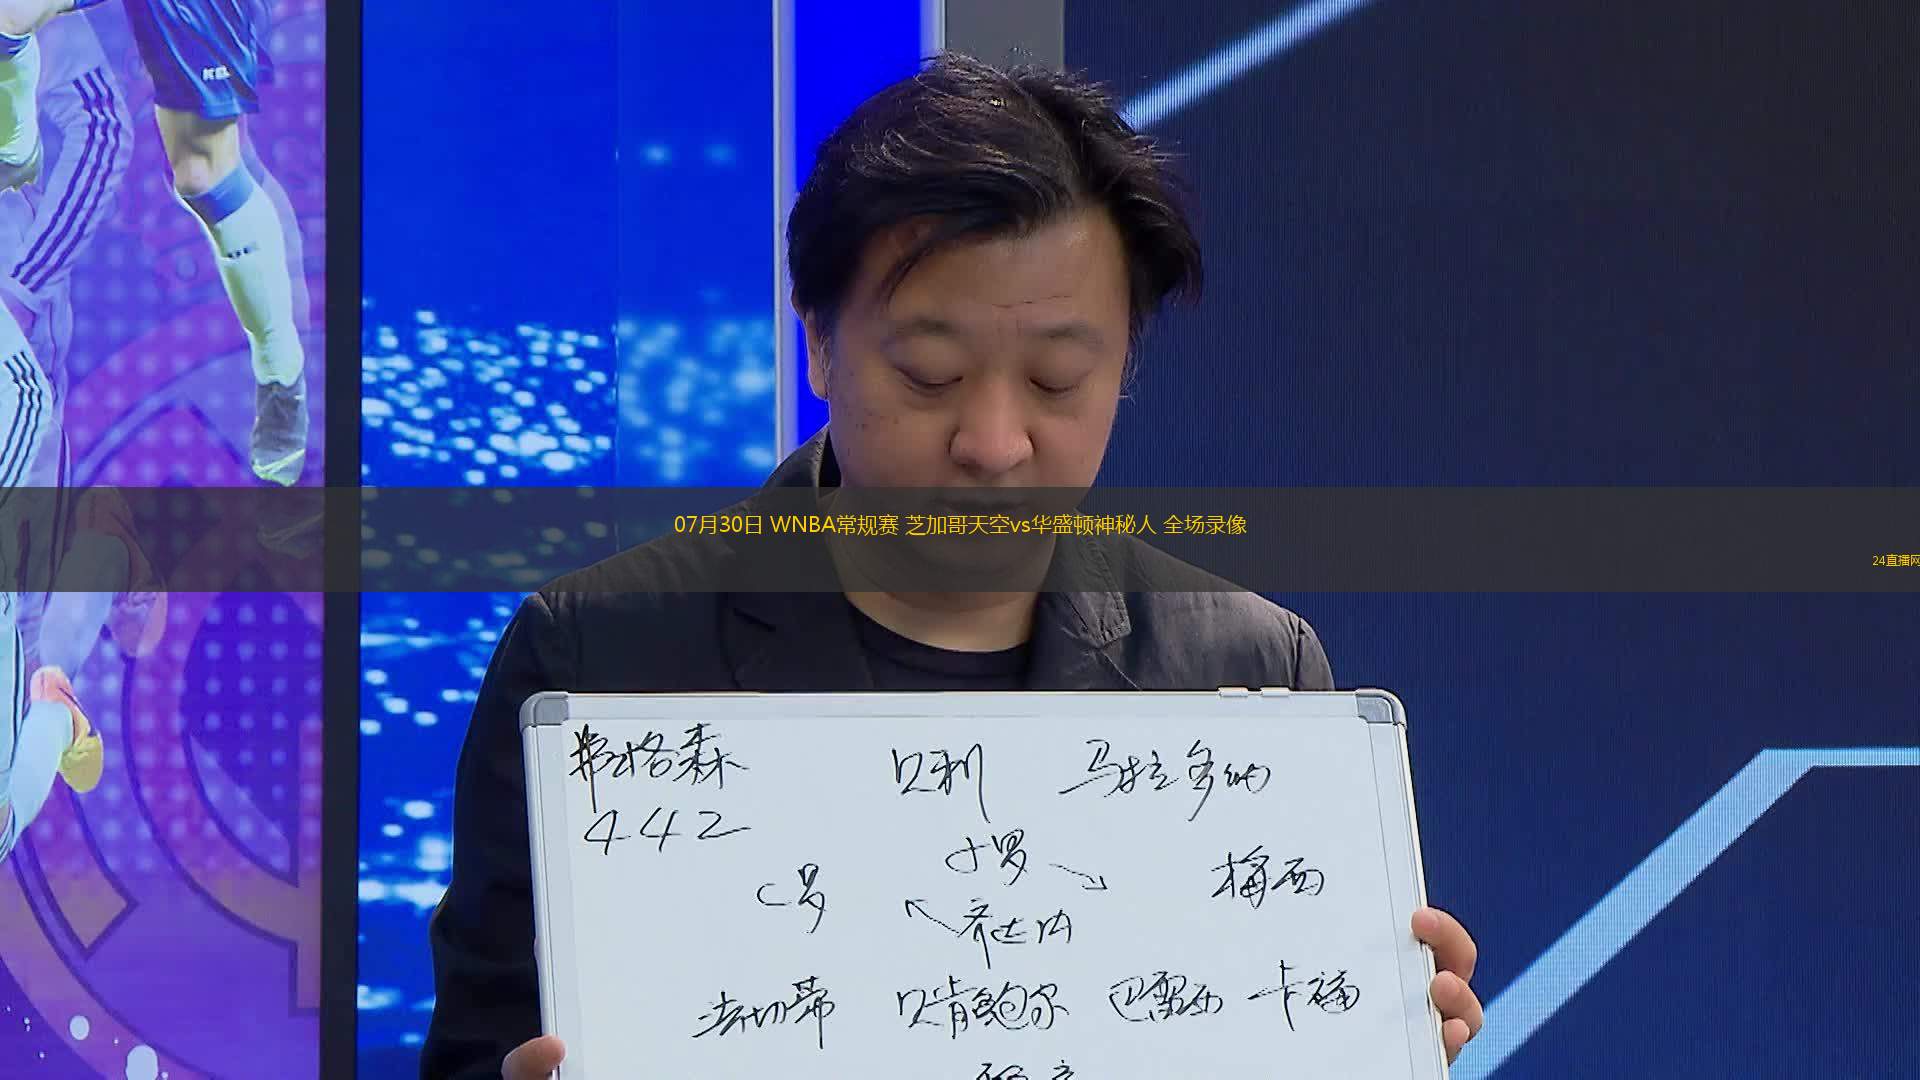 07月30日 WNBA常规赛 芝加哥天空vs华盛顿神秘人 全场录像
24直播网
弗格森 贝利 马拉多纳
442
小罗
C罗 梅西
齐达内
法切蒂 贝肯鲍尔 巴雷西 卡福